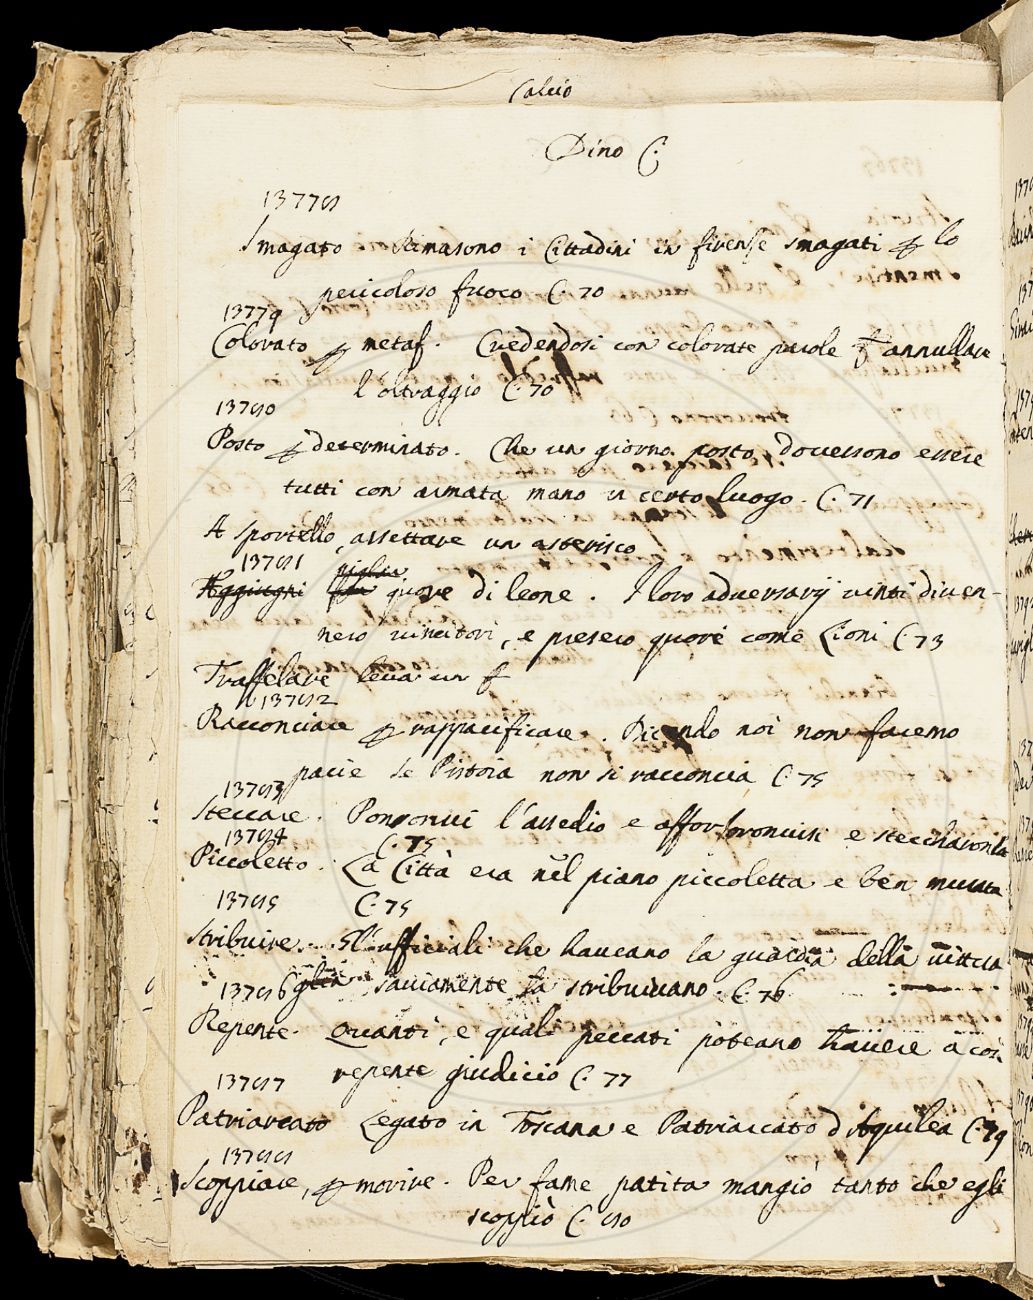 Calcio
Dino C.
13778
Smagato Rimasono i Cittadini in firenze smagati per lo
pericoloso fuoco C. 70
13779
Colorato per metaf. Credendosi con colorate parole annullare
l'oltraggio C. 70
13780
Posto per determinato. Che un giorno posto dovessono essere
tutti con armata mano in certo luogo. C. 71
A sportello, assettare un asterisco
13781
Aggiungi piglia quore di leone. I loro adversarij vinti diven-
nero vincitori, e presero quore come Lioni C. 73
Traffelare leva un f
13782
Racconciare per rappacificare. Dicendo noi non facemo
pacie se Pistoia non si racconcia C. 75
13783
Steccare. Ponponivi l'assedio e afforzoronvisi e stecchavonla
C. 75
13784
Piccoletto. La Città era nel piano piccoletta e ben murata
C. 75
13785
Stribuire. Gl'ufficiali che haveano la guardia della vittvia
saviamente la stribuivano. C. 76
13786
Repente. Quanti, e quali peccati poteano havere a così
repente giudicio C. 77
13787
Patriarcato Legato in Toscana e Patriarcato d'Aquilea C. 79
13788
Scoppiare, per morire. Per fame patita mangiò tanto che egli
scoppiò C. 80